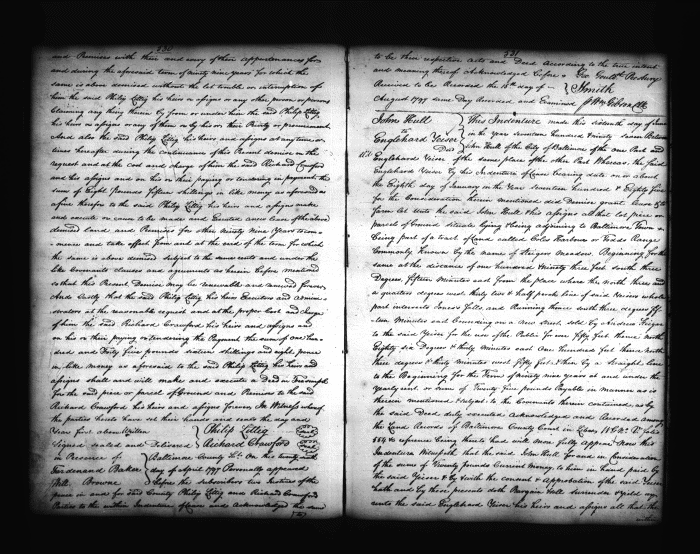 530
and Premises with their and every of their appurtenances for
and during the aforesaid term of ninety nine years for which the
same is above demised without the let trouble or interruption of
him the said Philip Littig his heirs or assigns or any other person or persons
claiming any thing therein by from or under him the said Philip Littig
his heirs or assigns or any of them or by his or their Privity or procurement
And also the said Philip Littig his heirs and assigns at any time or
times hereafter during the continuance of this Present demise on the
request and at the cost and charges of him the said Richard Crawford
and his assigns and on his or their paying or tendering in payment the
sum of Eight Pounds fifteen shillings in like money as aforesaid as
a fine therefor to the said Philip Littig his heirs and assigns make
and execute or cause to be made and Executed a new lease of the above
demised land and Premises for other ninety nine years to com-
mence and take effect from and at the end of the term for which
the same is above demised subject to the same rents and under the
like Covenants clauses and agreements as herein before mentioned
so that this Present Demise may be renewable and renewed forever
And lastly that the said Philip Littig his heirs Executors and Admini-
strators at the reasonable request and at the proper Cost and charge
of him the said Richard Crawford his heirs and assigns and
on his or their paying or tendering the Payment the sum of one hun-
dred and forty five pounds sixteen shillings and eight pence
in like money as aforesaid to the said Philip Littig his heirs and
assigns shall and will make and execute a Deed in fee simple
for the said piece or parcel of Ground and Premises to the said
Richard Crawford his heirs and assigns forever In Witness whereof
the parties hereto set their hands and seals the day and
Year first above Written Philip Littig
Signed sealed and Delivered Richard Crawford
in Presence of Baltimore County Sc. On this twenty
Ferdinand Baker day of April 1797 Personally appeared
Will. Browne before the subscribers two Justices of the
peace in and for said County Philip Littig and Richard Crawford
Parties to the within Indenture of Lease and Acknowledged the same
531
to be their respective Acts and Deed According to the true intent
and meaning thereof Acknowledged before Geo. Gould. Presbury
Received to be Recorded the 16th day of Smith
August 1797 same Day Recorded and Examined Wm Gibson Clk
John Hall This Indenture made this sixteenth day of June
to in the Year seventeen hundred Ninety seven Between
Englehard Yeiser John Hall of the City of Baltimore of the one Part and
Deed
Englehard Yeiser of the same place of the other Part Whereas the said
Englehard Yeiser by his Indenture of Lease bearing date on or about
the Eighth day of January in the Year seventeen hundred & Eighty five
for the Consideration herein mentioned did Demise grant Lease &
farm let Unto the said John Hall & his assigns all that lot piece or
parcel of Ground situate lying & being adjoining to Baltimore Town &
being part of a tract of Land called Coles Harbour or Todds Range
Commonly Known by the name of Steigers Meadow Beginning for the
same at the distance of one hundred Ninety three feet south three
Degrees fifteen Minutes east from the place where the North three and
a quarter degrees west thirty two & half perch line of said Yeisers whole
part intersects Jones's Falls and Running thence south three degrees fif-
teen Minutes east bounding on a new street sold by Andrew Steiger
to the said Yeiser for the use of the Public for ever fifty feet thence north
Eighty six Degrees & thirty minutes east One hundred feet thence North
three degrees & thirty minutes west fifty feet & then by a straight line
to the Beginning for the Term of ninety nine years at and under the
yearly rent or sum of Twenty five pounds Payable in manner as is
therein mentioned & subject to the Covenants therein contained, as by
the said Deed duly executed Acknowledged and Recorded among
the Land Records of Baltimore County Court in Liber
554 & reference being thereto had will more fully appear Now this
Indenture Witnesseth that the said John Hall for and in Consideration
of the sum of Twenty pounds Current Money to him in hand paid by
the said Yeiser & by & with the consent & approbation of the said Yeiser
hath and by these presents doth Bargain sell surrender & yield up
unto the said Englehard Yeiser his heirs and assigns all that the
within